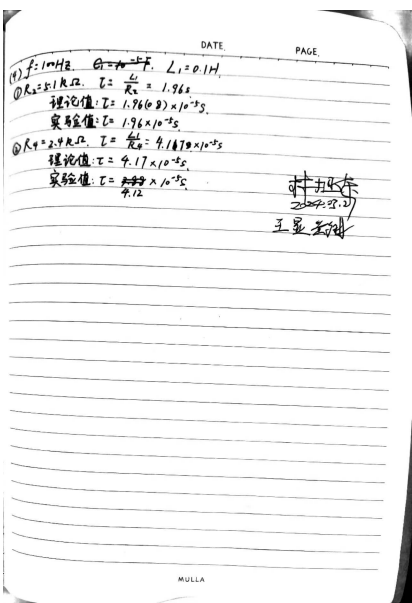 DATE.
PAGE.
(4) f=100Hz. L₁=0.1H.
① R₂=5.1kΩ. τ=L₁/R₂=1.96s.
理论值:τ=1.96(08)×10⁻⁵s.
实验值:τ=1.96×10⁻⁵s.
② R₄=2.4kΩ. τ=L₁/R₄=4.1679×10⁻⁵s
理论值:τ=4.17×10⁻⁵s.
实验值:τ=4.12×10⁻⁵s.
MULLA